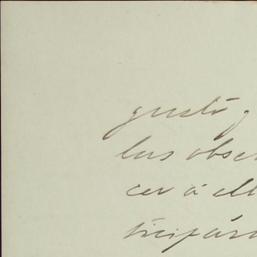 gusto
las obser
cer á ell
ticipár